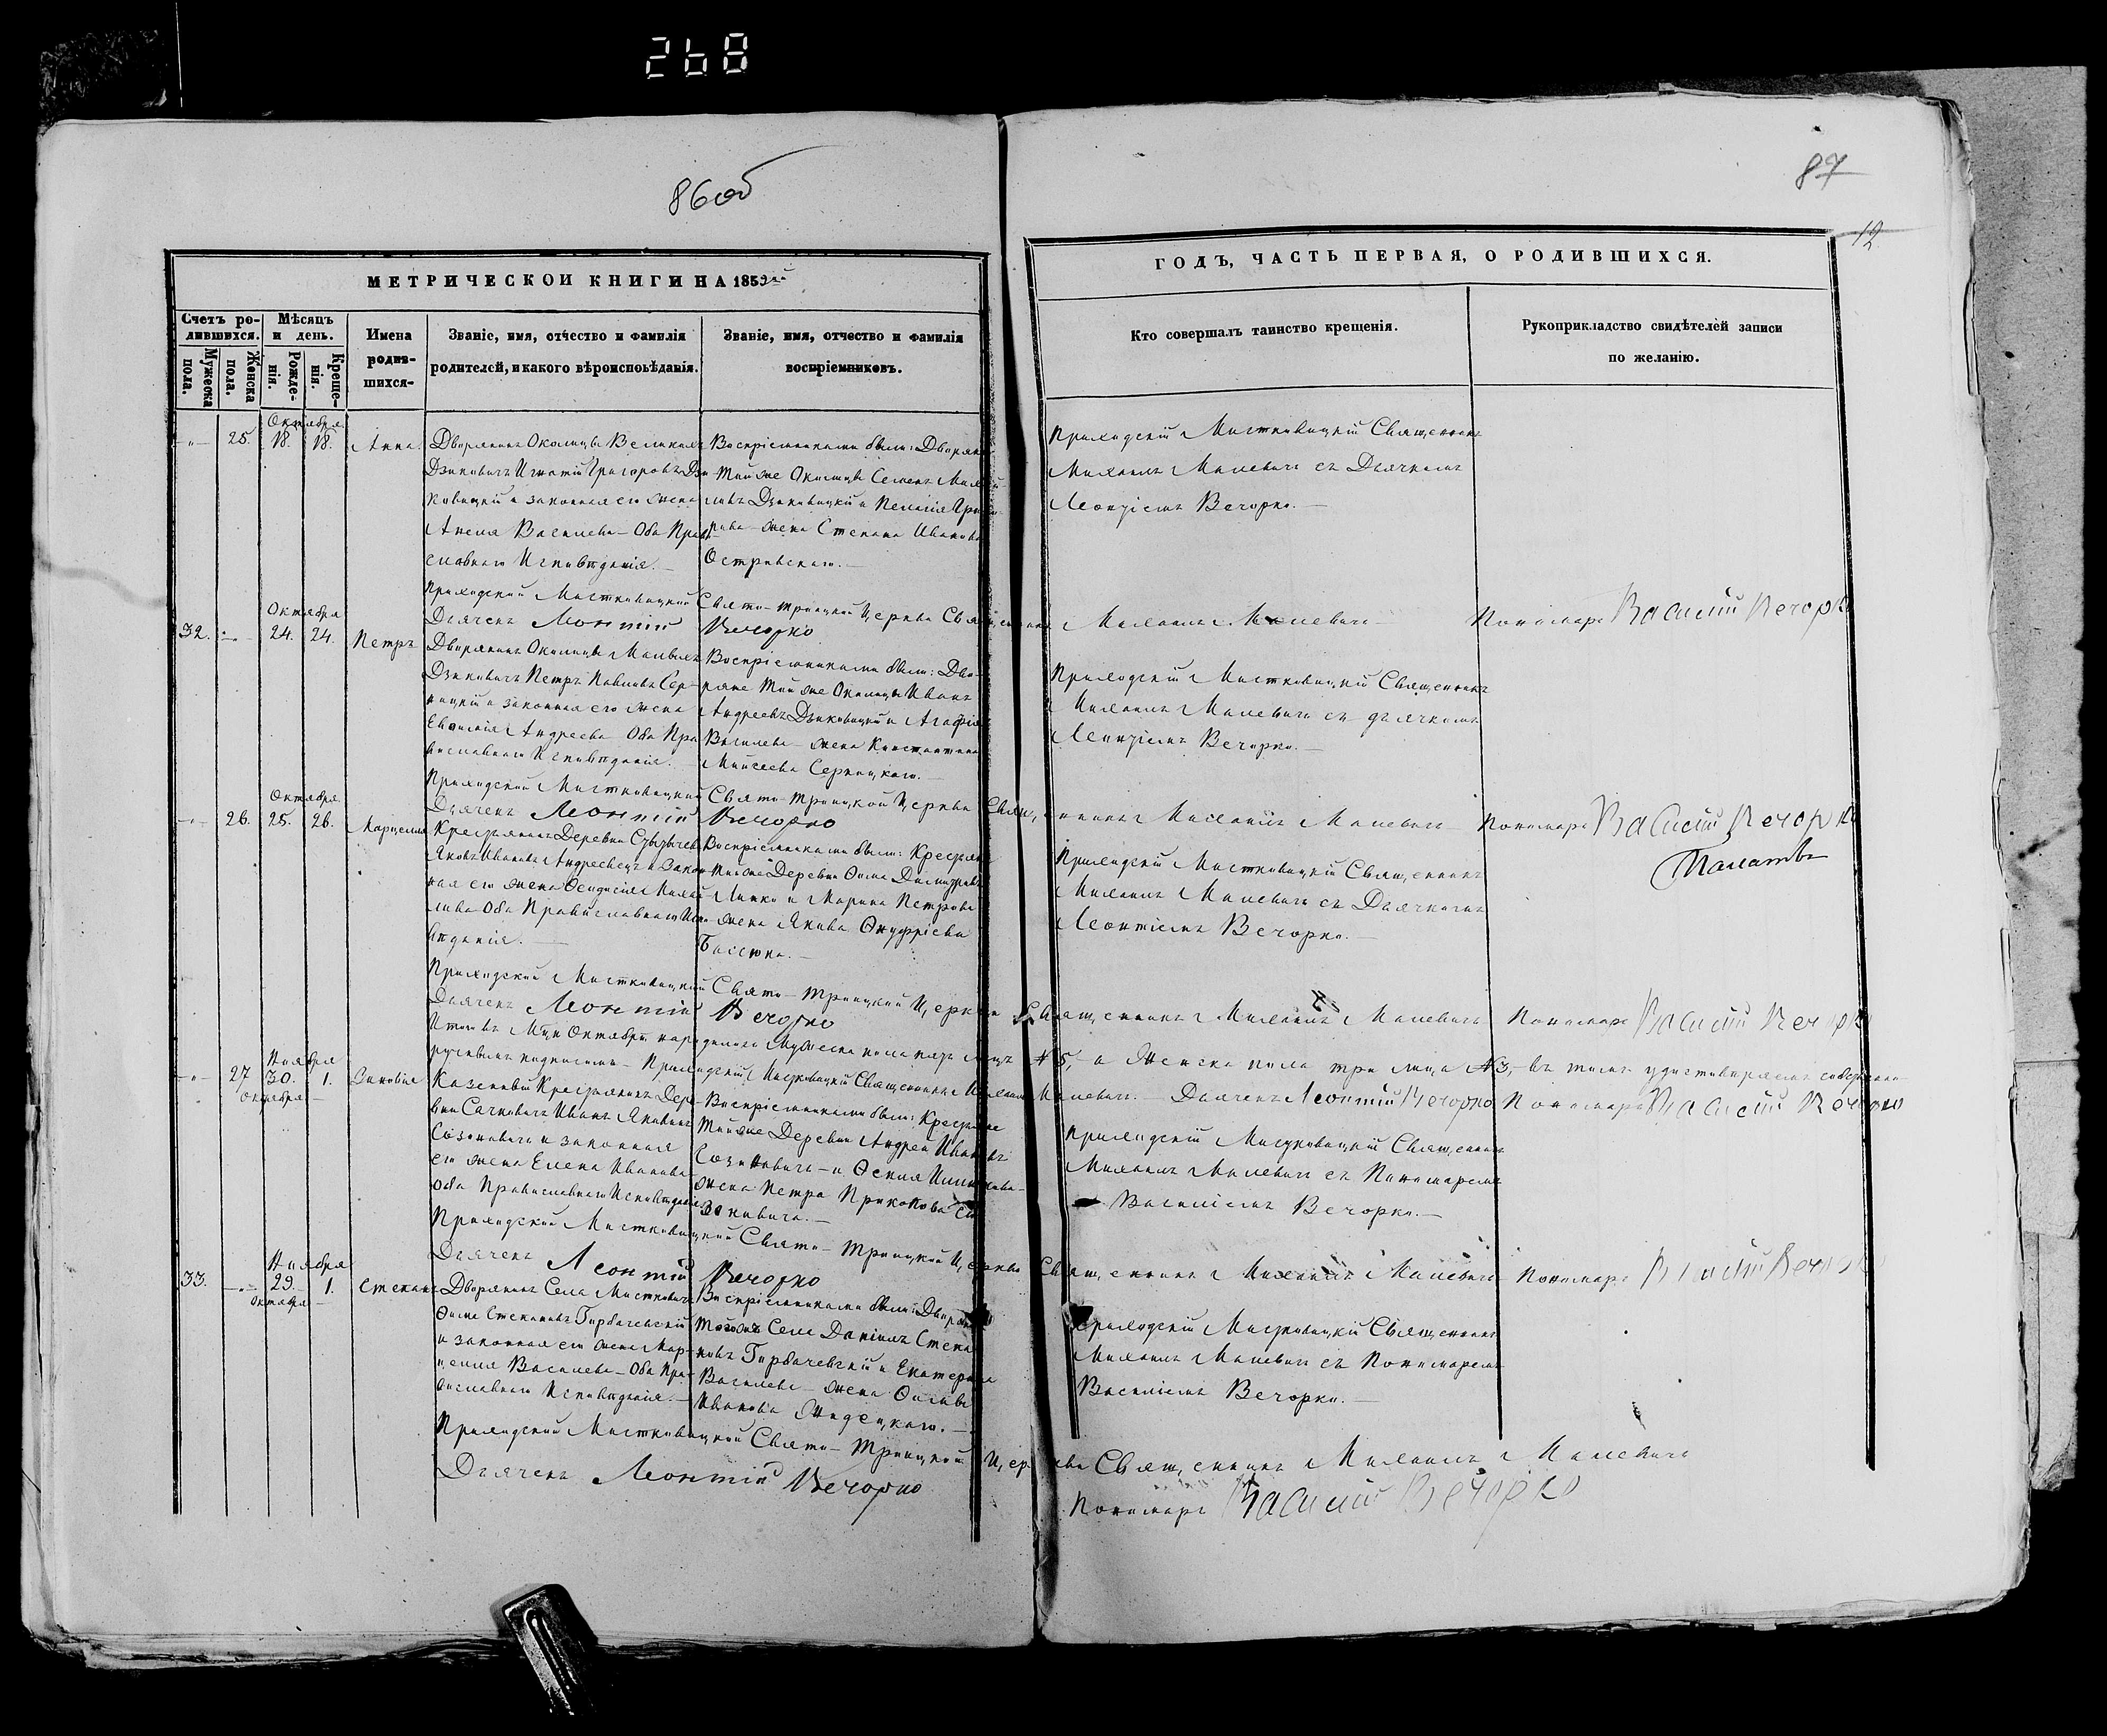 268
86об
87
12
МЕТРИЧЕСКОЙ КНИГИ НА 1859й
ГОДЪ, ЧАСТЬ ПЕРВАЯ, О РОДИВШИХСЯ.
Счетъ ро-
дившихся.
Мужеска
пола.
Женска
пола.
Мѣсяцъ
и день.
Рожде-
нія.
Креще-
нія.
Имена
родив-
шихся-
Званіе, имя, отчество и фамилія
родителей, и какого вѣроисповѣданія.
Званіе, имя, отчество и фамилія
воспріемниковъ.
Кто совершалъ таинство крещенія.
Рукоприкладство свидѣтелей записи
по желанію.
Октября
25. 18. 18. Анна.
Дворянинъ Околицы Великихъ
Дзиковичъ Игнатій Григоровъ Дзи
ковицкій и законная его жена
Васильева – Оба Право
славнаго Исповѣданія. –
Воспріемниками были: Дворяне
Той же Околицы Семенъ
Дзиковицкій и Пелагія
жена Степана Иванова
Островскаго. –
Приходскій Мистковицкій Священникъ
Михаилъ Малевичъ съ Дьячкомъ
Леонтіемъ Вечорко. –
Приходскій Мистковицкой Свято-Троицкой Церкви Священникъ Михаилъ Малевичъ
Дьячекъ Леонтій Вечорко
Пономарь Василій Вечорко
Октября
32. 24. 24. Петръ
Дворянинъ Околицы Малыхъ
Дзиковичъ Петръ Павловъ Сер-
ницкій и законная его жена
Андреева Оба Пра
вославнаго Исповѣданія. –
Воспріемниками были: Дво-
ряне Той же Околицы Иванъ
Андреевъ Дзиковицкій и Агафія
Васильева – жена Константина
Моисеева Серницкаго. –
Приходскій Мистковицкій Священникъ
Михаилъ Малевичъ съ дьячкомъ
Леонтіемъ Вечорко. –
Приходскій Мистковицкой Свято-Троицкой Церкви Священникъ Михаилъ Малевичъ
Дьячекъ Леонтій Вечорко
Пономарь Василій Вечорко
Октября
26. 25. 26.
Крестьянинъ Деревни
Яковъ Ивановъ Андреевецъ и закон
ная его жена Михай
лова Оба Православнаго Испо
вѣданія. –
Воспріемниками были: Крестьяне
Той же Деревни Фома Димитріевъ
и Марина Петрова
жена Якова Онуфріева
Приходскій Мистковицкій Священникъ
Михаилъ Малевичъ съ Дьячкомъ
Леонтіемъ Вечорко. –
Приходскій Мистковицкой Свято-Троицкой Церкви Священникъ Михаилъ Малевичъ
Дьячекъ Леонтій Вечорко
Пономарь Василій Вечорко
Итого въ Мцѣ Октябрѣ народилось Мужеска пола пять лицъ №5, а Женска пола три лица №3, – въ томъ удостовѣряемъ собственно-
ручнымъ подписомъ – Приходскій Мистковицкій Священникъ Михаилъ Малевичъ. – Дьячекъ Леонтій Вечорко Пономарь Василій Вечорко
Ноября
27 30. 1. Зиновія
Октября
Казенный Крестьянинъ Дер-
вни Сачковичъ Иванъ Яковлевъ
Созоновичъ и законная
его жена Елена Иванова –
Оба Православнаго Исповѣданія.
Воспріемниками были: Крестьяне
Той же Деревни Андрей Ивановъ
Созоновичъ – и Ѳекла
жена Петра Прокопова Со
зоновича. –
Приходскій Мистковицкій Священникъ
Михаилъ Малевичъ съ Пономаремъ
Василіемъ Вечорко. –
Приходскій Мистковицкой Свято-Троицкой Церкви Священникъ Михаилъ Малевичъ
Дьячекъ Леонтій Вечорко
Пономарь Василій Вечорко
Ноября
33. 29. 1. Степанъ
Октября
Дворянинъ Села Мистковичъ
Фома Степановъ Горбачевскій
и законная его жена Мар-
целла Васильева – Оба Пра-
вославнаго Исповѣданія. –
Воспріемниками были: Дворяне
Тогожъ Села Даніилъ Степа
новъ Горбачевскій и Екатерина
Васильева – жена
Иванова
Приходскій Мистковицкій Священникъ
Михаилъ Малевичъ съ Пономаремъ
Василіемъ Вечорко. –
Приходскій Мистковицкой Свято-Троицкой Церкви Священникъ Михаилъ Малевичъ
Дьячекъ Леонтій Вечорко
Пономарь Василій Вечорко